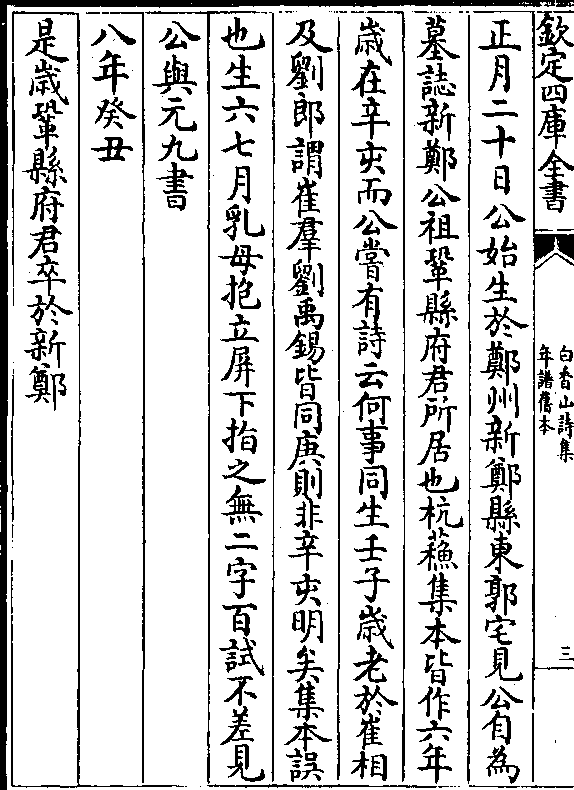 欽定四庫全書
白香山詩集
年譜舊本
三
正月二十日公始生於鄭州新鄭縣東郭宅見公自為
墓誌新鄭公祖鞏縣府君所居也杭蘓集本皆作六年
歳在辛亥而公嘗有詩云何事同生壬子歳老於崔相
及劉郎謂崔羣劉禹錫皆同庚則非辛亥明矣集本誤
也生六七月乳母抱立屏下指之無二字百試不差見
公與元九書
八年癸丑
是歳鞏縣府君卒於新鄭